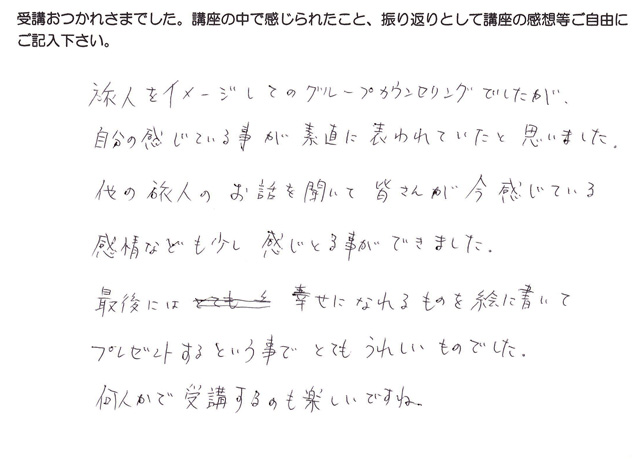 受講おつかれさまでした。講座の中で感じられたこと、振り返りとして講座の感想等ご自由に
ご記入下さい。
旅人をイメージしてのグループカウンセリングでしたが、
自分の感じている事が素直に表われていたと思いました。
他の旅人のお話を聞いて皆さんが今感じている
感情なども少し感じとる事ができました。
最後には 幸せになれるものを絵に書いて
プレゼントするという事でとてもうれしいものでした。
何人かで受講するのも楽しいですね。